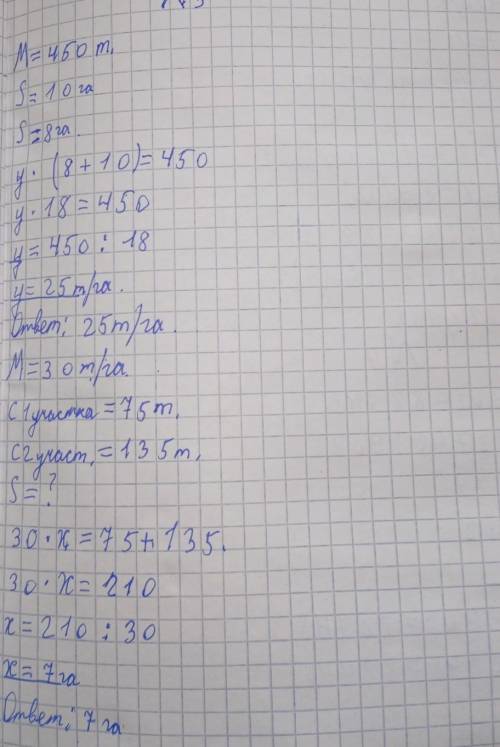 M = 450 т.
S = 10 га
S = 8 га.
y · (8 + 10) = 450
y · 18 = 450
y = 450 : 18
y = 25 т/га.
Ответ: 25 т/га.
M = 30 т/га.
С 1 участка = 75 т.
С 2 участ. = 135 т.
S = ?
30 · x = 75 + 135.
30 · x = 210
x = 210 : 30
x = 7 га
Ответ: 7 га